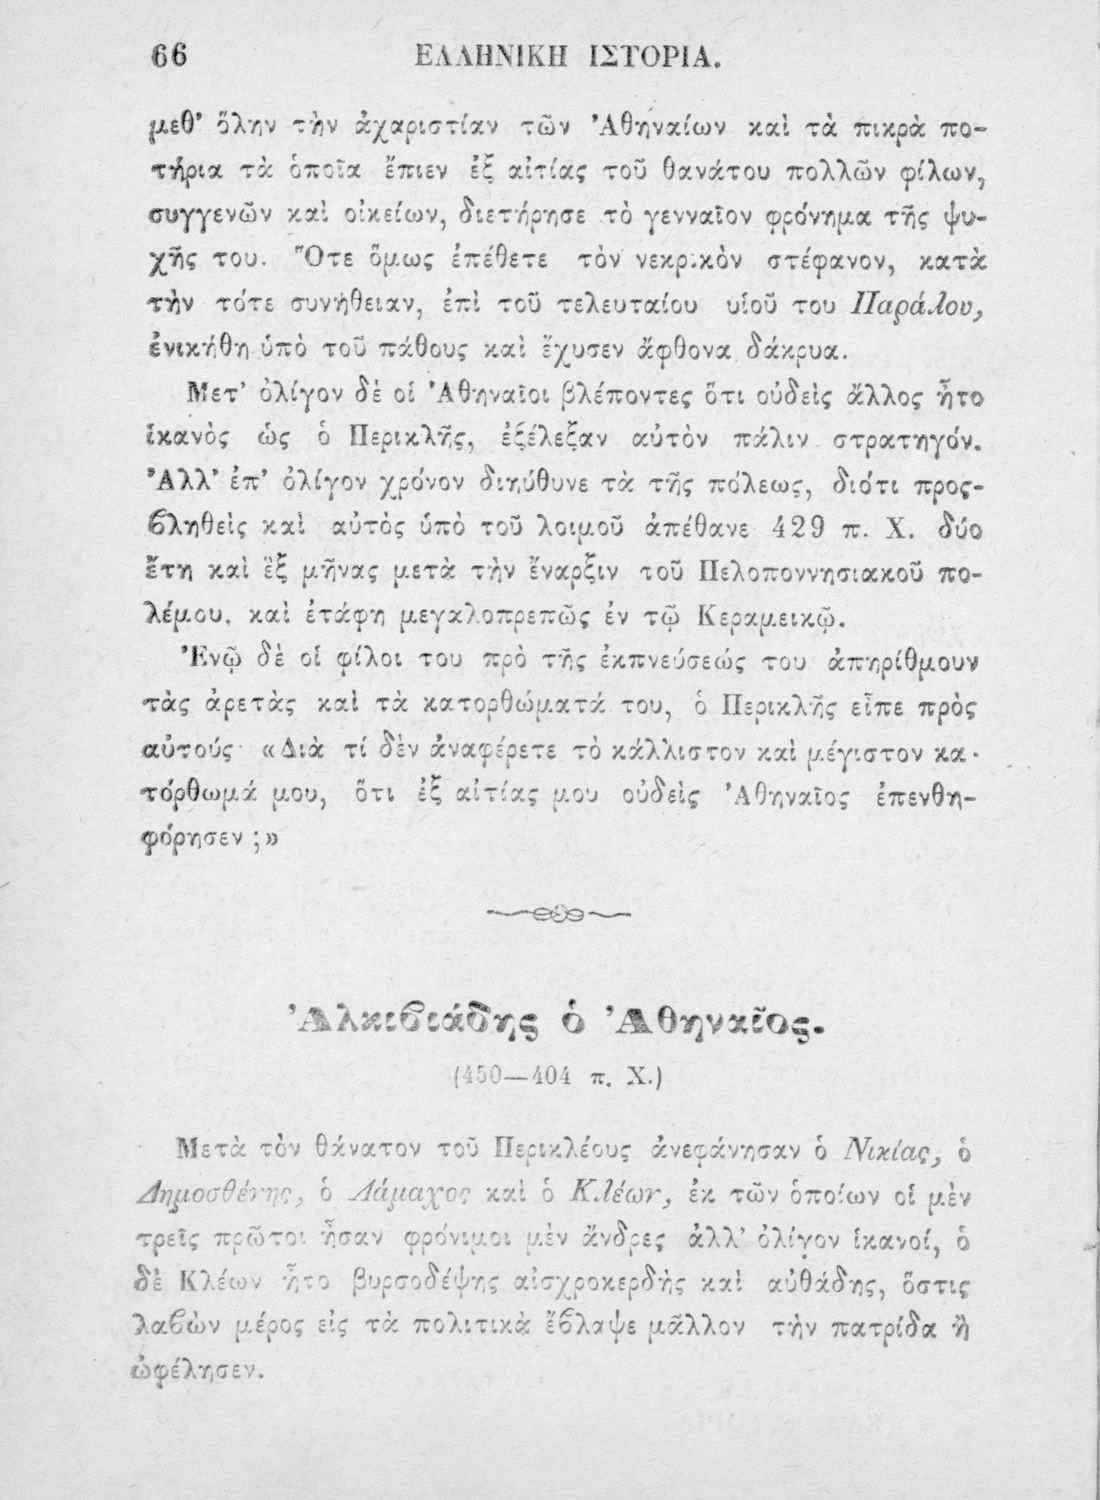 66 ΕΛΛΗΝΙΚΗ ΙΣΤΟΡΙΑ.
μεθ' ὅλην τὴν ἀχαριστίαν τῶν Ἀθηναίων καὶ τὰ πικρὰ πο-
τήρια τὰ ὁποῖα ἔπιεν ἐξ αἰτίας τοῦ θανάτου πολλῶν φίλων,
συγγενῶν καὶ οἰκείων, διετήρησε τὸ γενναῖον φρόνημα τῆς ψυ-
χῆς του. Ὅτε ὅμως ἐπέθετε τὸν νεκρικὸν στέφανον, κατὰ
τὴν τότε συνήθειαν, ἐπὶ τοῦ τελευταίου υἱοῦ του Παράλου,
ἐνικήθη ὑπὸ τοῦ πάθους καὶ ἔχυσεν ἄφθονα δάκρυα.
Μετ' ὀλίγον δὲ οἱ Ἀθηναῖοι βλέποντες ὅτι οὐδεὶς ἄλλος ἦτο
ἱκανὸς ὡς ὁ Περικλῆς, ἐξέλεξαν αὐτὸν πάλιν στρατηγόν.
Ἀλλ' ἐπ' ὀλίγον χρόνον διηύθυνε τὰ τῆς πόλεως, διότι προς-
ϐληθεὶς καὶ αὐτὸς ὑπὸ τοῦ λοιμοῦ ἀπέθανε 429 π. Χ. δύο
ἔτη καὶ ἓξ μῆνας μετὰ τὴν ἔναρξιν τοῦ Πελοποννησιακοῦ πο-
λέμου, καὶ ἐτάφη μεγαλοπρεπῶς ἐν τῷ Κεραμεικῷ.
Ἐνῷ δὲ οἱ φίλοι του πρὸ τῆς ἐκπνεύσεώς του ἀπηρίθμουν
τὰς ἀρετὰς καὶ τὰ κατορθώματά του, ὁ Περικλῆς εἶπε πρὸς
αὐτούς· «Διὰ τί δὲν ἀναφέρετε τὸ κάλλιστον καὶ μέγιστον κα-
τόρθωμά μου, ὅτι ἐξ αἰτίας μου οὐδεὶς Ἀθηναῖος ἐπενθη-
φόρησεν ;»
Ἀλκιϐιάδης ὁ Ἀθηναῖος.
(450—404 π. Χ.)
Μετὰ τὸν θάνατον τοῦ Περικλέους ἀνεφάνησαν ὁ Νικίας, ὁ
Δημοσθένης, ὁ Λάμαχος καὶ ὁ Κλέων, ἐκ τῶν ὁποίων οἱ μὲν
τρεῖς πρῶτοι ἦσαν φρόνιμοι μὲν ἄνδρες ἀλλ' ὀλίγον ἱκανοί, ὁ
δὲ Κλέων ἦτο βυρσοδέψης αἰσχροκερδὴς καὶ αὐθάδης, ὅστις
λαϐὼν μέρος εἰς τὰ πολιτικὰ ἔϐλαψε μᾶλλον τὴν πατρίδα ἢ
ὠφέλησεν.